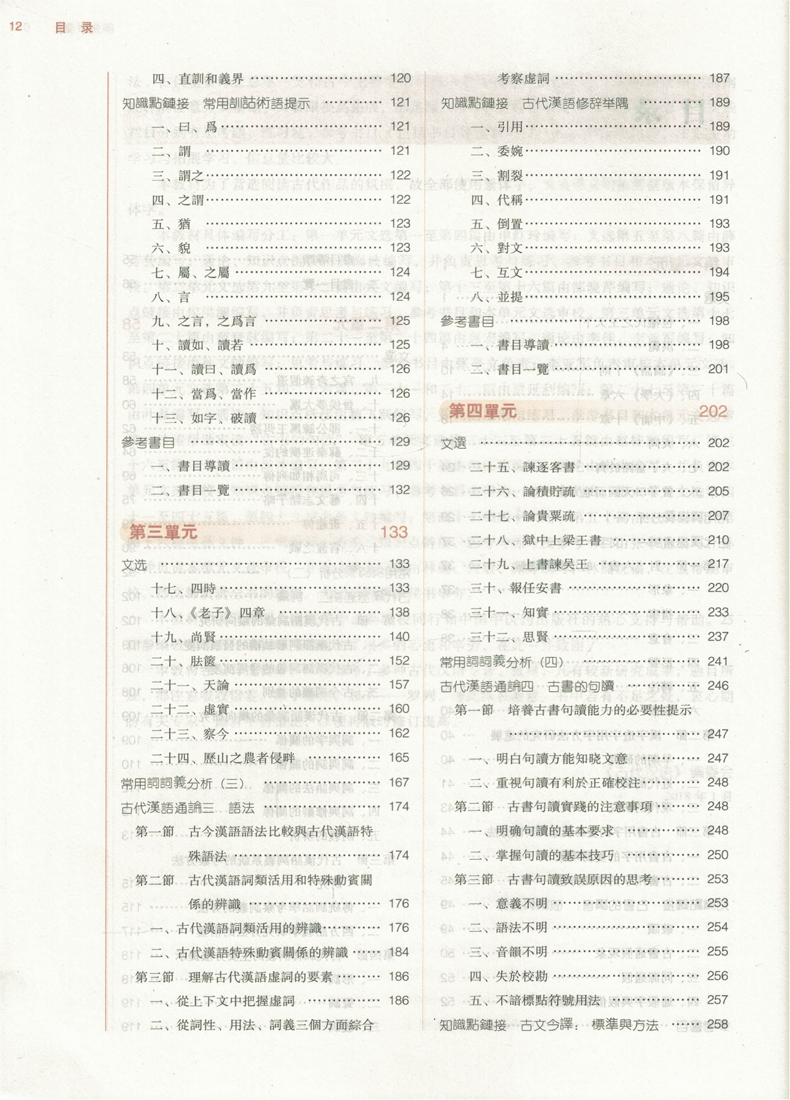 12 目 录
四、直訓和義界 ………… 120
知識點鏈接 常用訓詁術語提示 ………… 121
一、曰、爲 ………… 121
二、謂 ………… 121
三、謂之 ………… 122
四、之謂 ………… 122
五、猶 ………… 123
六、貌 ………… 123
七、屬、之屬 ………… 124
八、言 ………… 124
九、之言，之爲言 ………… 125
十、讀如、讀若 ………… 125
十一、讀曰、讀爲 ………… 126
十二、當爲、當作 ………… 126
十三、如字、破讀 ………… 126
參考書目 ………… 129
一、書目導讀 ………… 129
二、書目一覽 ………… 132
第三單元 133
文选 ………… 133
十七、四時 ………… 133
十八、《老子》四章 ………… 138
十九、尚賢 ………… 140
二十、胠篋 ………… 152
二十一、天論 ………… 157
二十二、虛實 ………… 160
二十三、察今 ………… 162
二十四、歷山之農者侵畔 ………… 165
常用詞詞義分析（三） ………… 167
古代漢語通論三 語法 ………… 174
第一節 古今漢語語法比較與古代漢語特
殊語法 ………… 174
第二節 古代漢語詞類活用和特殊動賓關
係的辨識 ………… 176
一、古代漢語詞類活用的辨識 ………… 176
二、古代漢語特殊動賓關係的辨識 ………… 184
第三節 理解古代漢語虛詞的要素 ………… 186
一、從上下文中把握虛詞 ………… 186
二、從詞性、用法、詞義三個方面綜合
考察虛詞 ………… 187
知識點鏈接 古代漢語修辞举隅 ………… 189
一、引用 ………… 189
二、委婉 ………… 190
三、割裂 ………… 191
四、代稱 ………… 191
五、倒置 ………… 193
六、對文 ………… 193
七、互文 ………… 194
八、並提 ………… 195
參考書目 ………… 198
一、書目導讀 ………… 198
二、書目一覽 ………… 201
第四單元 202
文選 ………… 202
二十五、諫逐客書 ………… 202
二十六、論積貯疏 ………… 205
二十七、論貴粟疏 ………… 207
二十八、獄中上梁王書 ………… 210
二十九、上書諫吴王 ………… 217
三十、報任安書 ………… 220
三十一、知實 ………… 233
三十二、思賢 ………… 237
常用詞詞義分析（四） ………… 241
古代漢語通論四 古書的句讀 ………… 246
第一節 培養古書句讀能力的必要性提示
………… 247
一、明白句讀方能知晓文意 ………… 247
二、重視句讀有利於正確校注 ………… 248
第二節 古書句讀實踐的注意事項 ………… 248
一、明确句讀的基本要求 ………… 248
二、掌握句讀的基本技巧 ………… 250
第三節 古書句讀致誤原因的思考 ………… 253
一、意義不明 ………… 253
二、語法不明 ………… 254
三、音韻不明 ………… 255
四、失於校勘 ………… 256
五、不諳標點符號用法 ………… 257
知識點鏈接 古文今譯：標準與方法 ………… 258